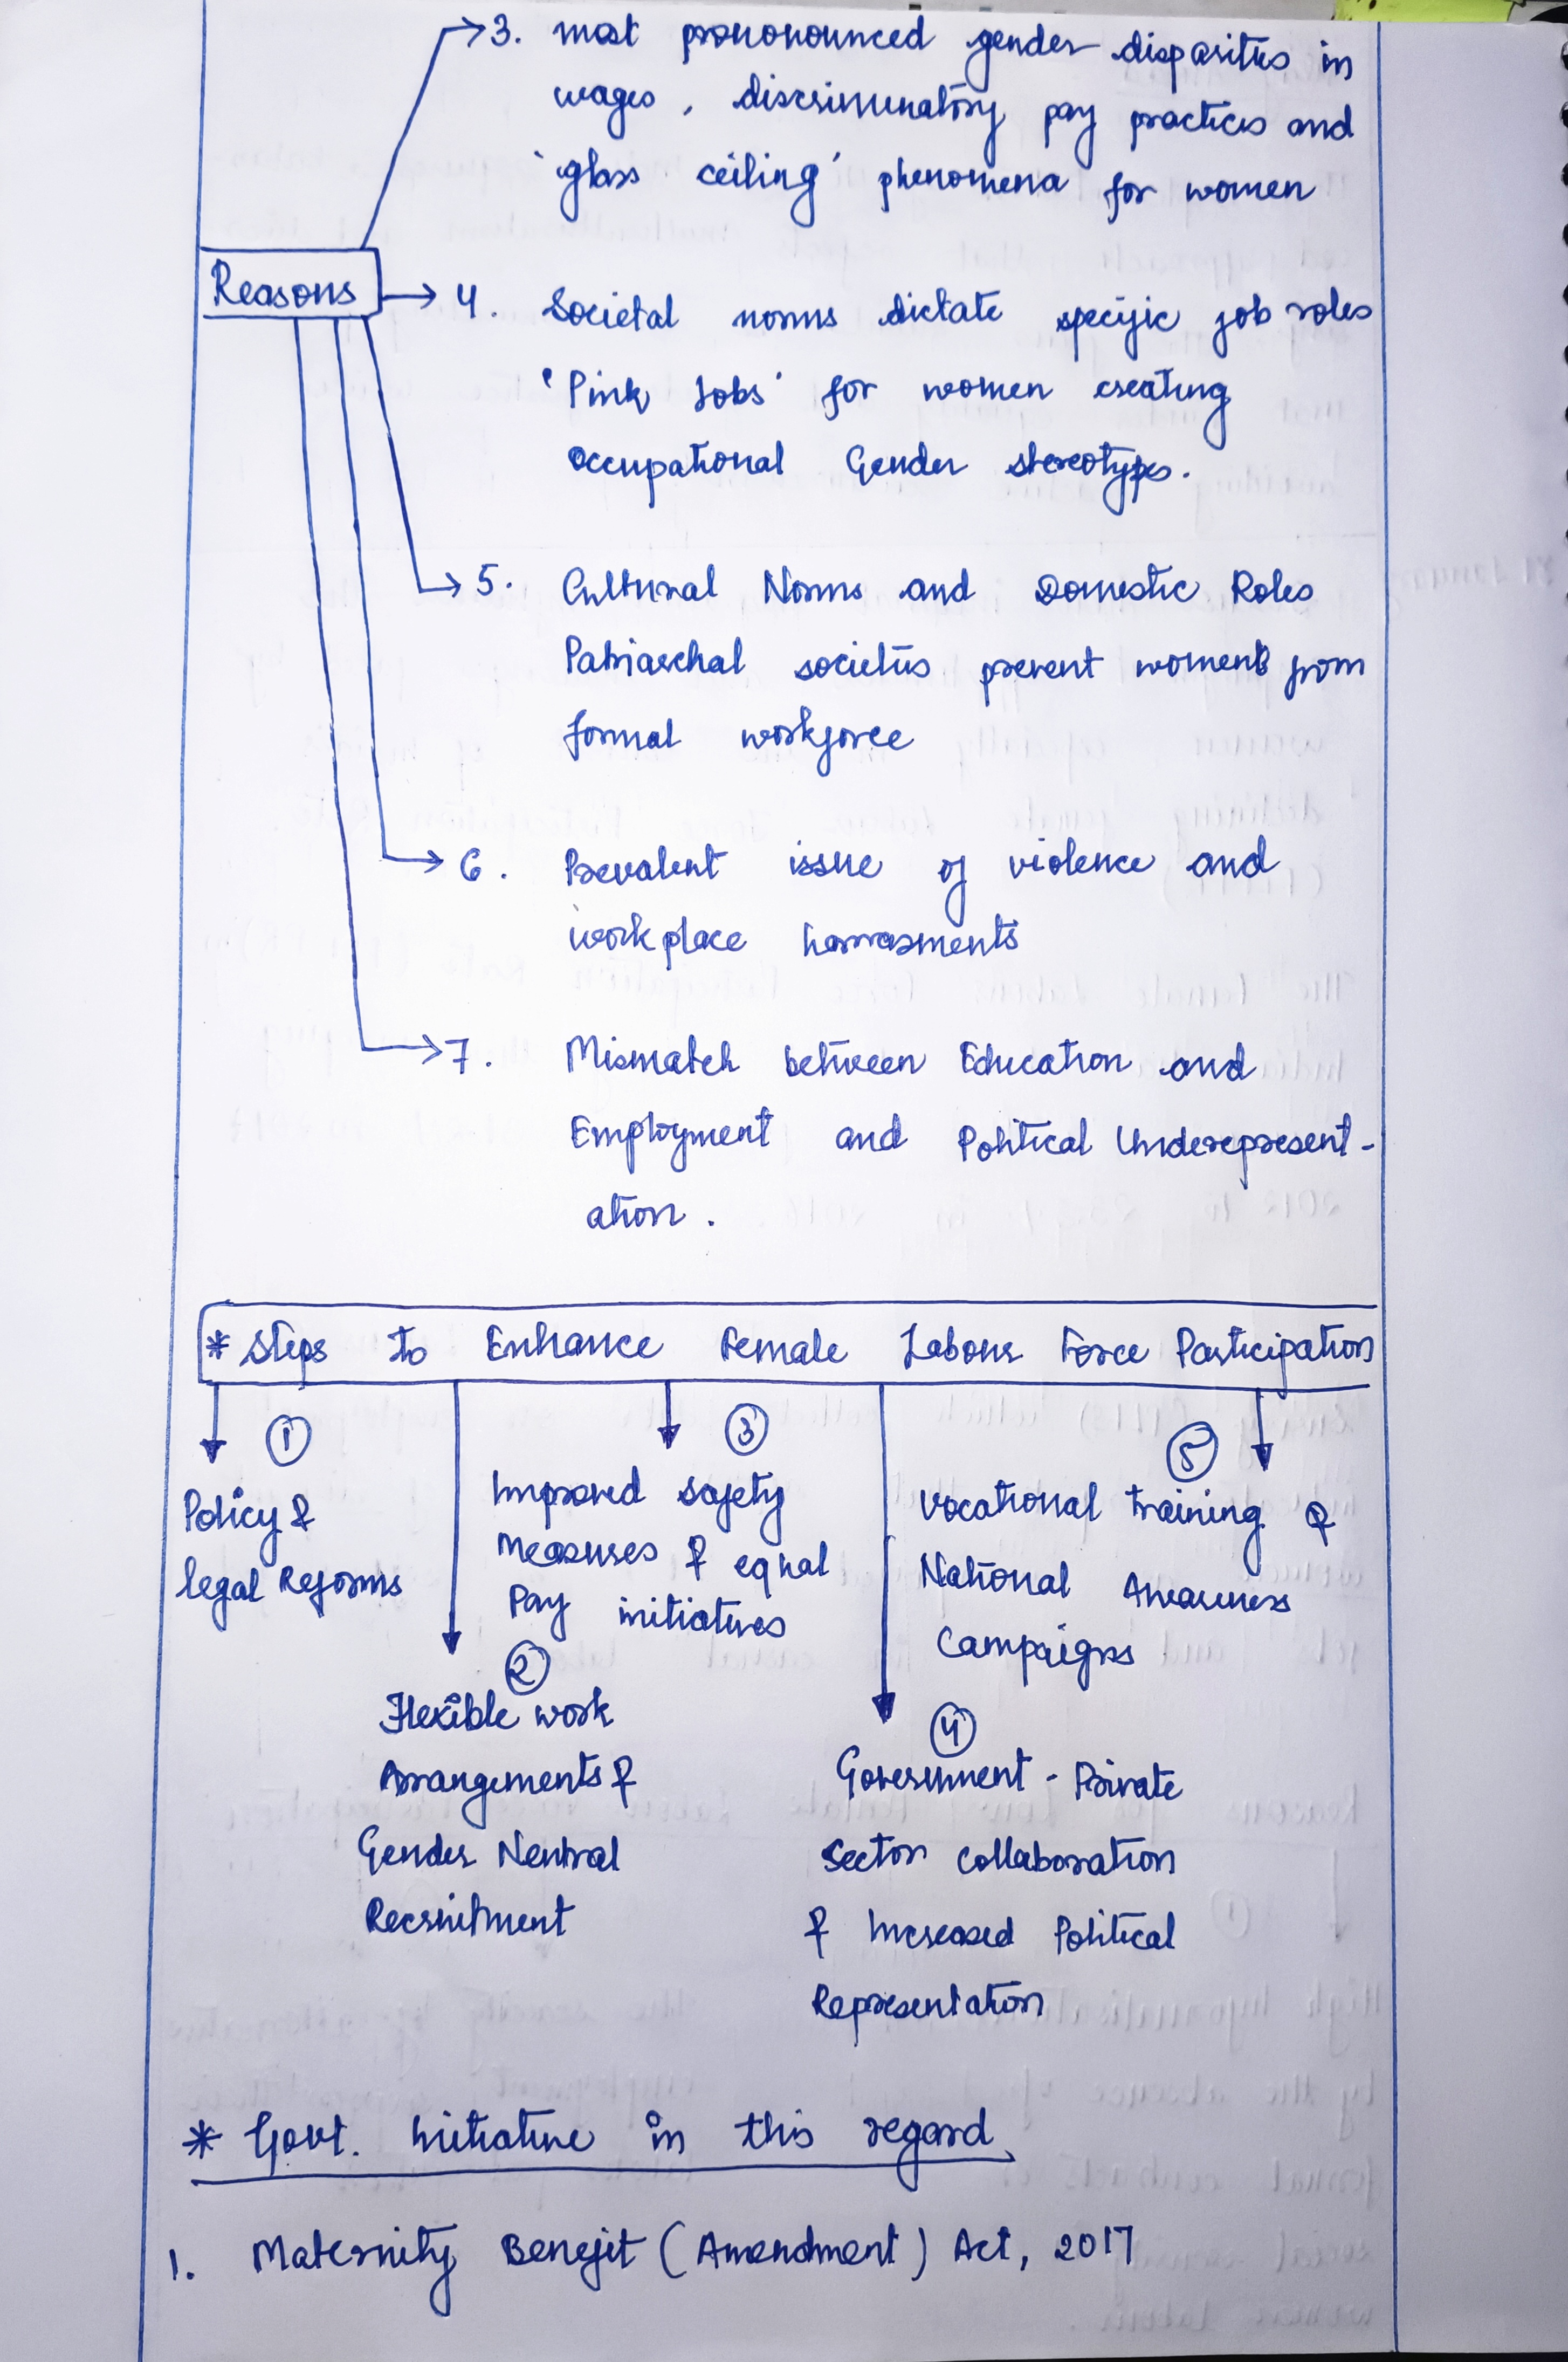 3. most prononounced gender disparities in
wages, discriminatory pay practices and
'glass ceiling' phenomena for women
Reasons
4. Societal norms dictate specific job roles
'Pink Jobs' for women creating
occupational Gender stereotypes.
5. Cultural Norms and Domestic Roles
Patriarchal societies prevent women from
formal workforce
6. Prevalent issue of violence and
workplace harrasments
7. Mismatch between Education and
Employment and Political Underepresent-
ation.
* Steps to Enhance Female Labour Force Participation
1
Policy &
legal Reforms
2
Flexible work
Arrangements &
Gender Neutral
Recruitment
3
Improved safety
Measures & equal
Pay initiatives
4
Government - Private
Sector collaboration
& Increased Political
Representation
5
Vocational training &
National Awareness
Campaigns
* Govt. Initiative in this regard
1. Maternity Benefit (Amendment) Act, 2017